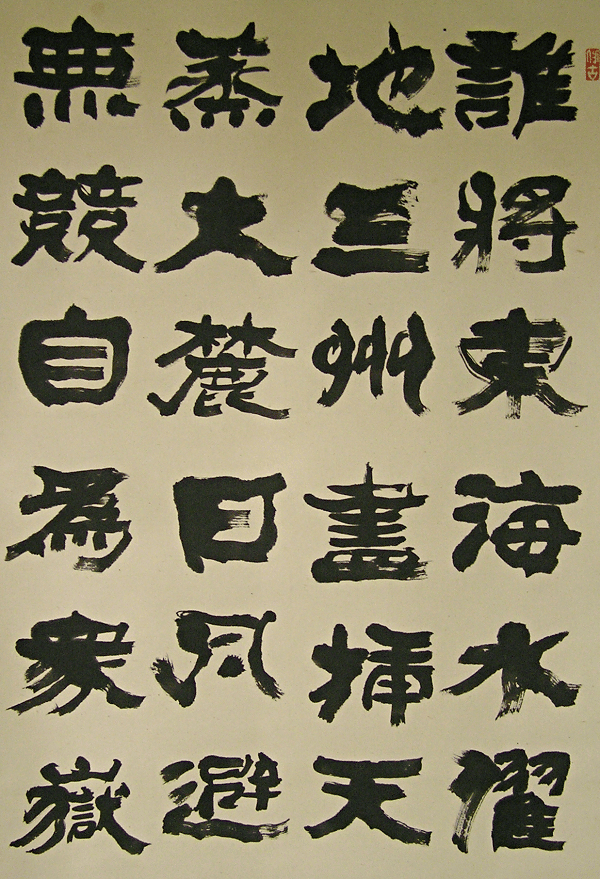 誰將東海水濯
地三州盡插天
蒸大麓日月避
無競自為衆嶽